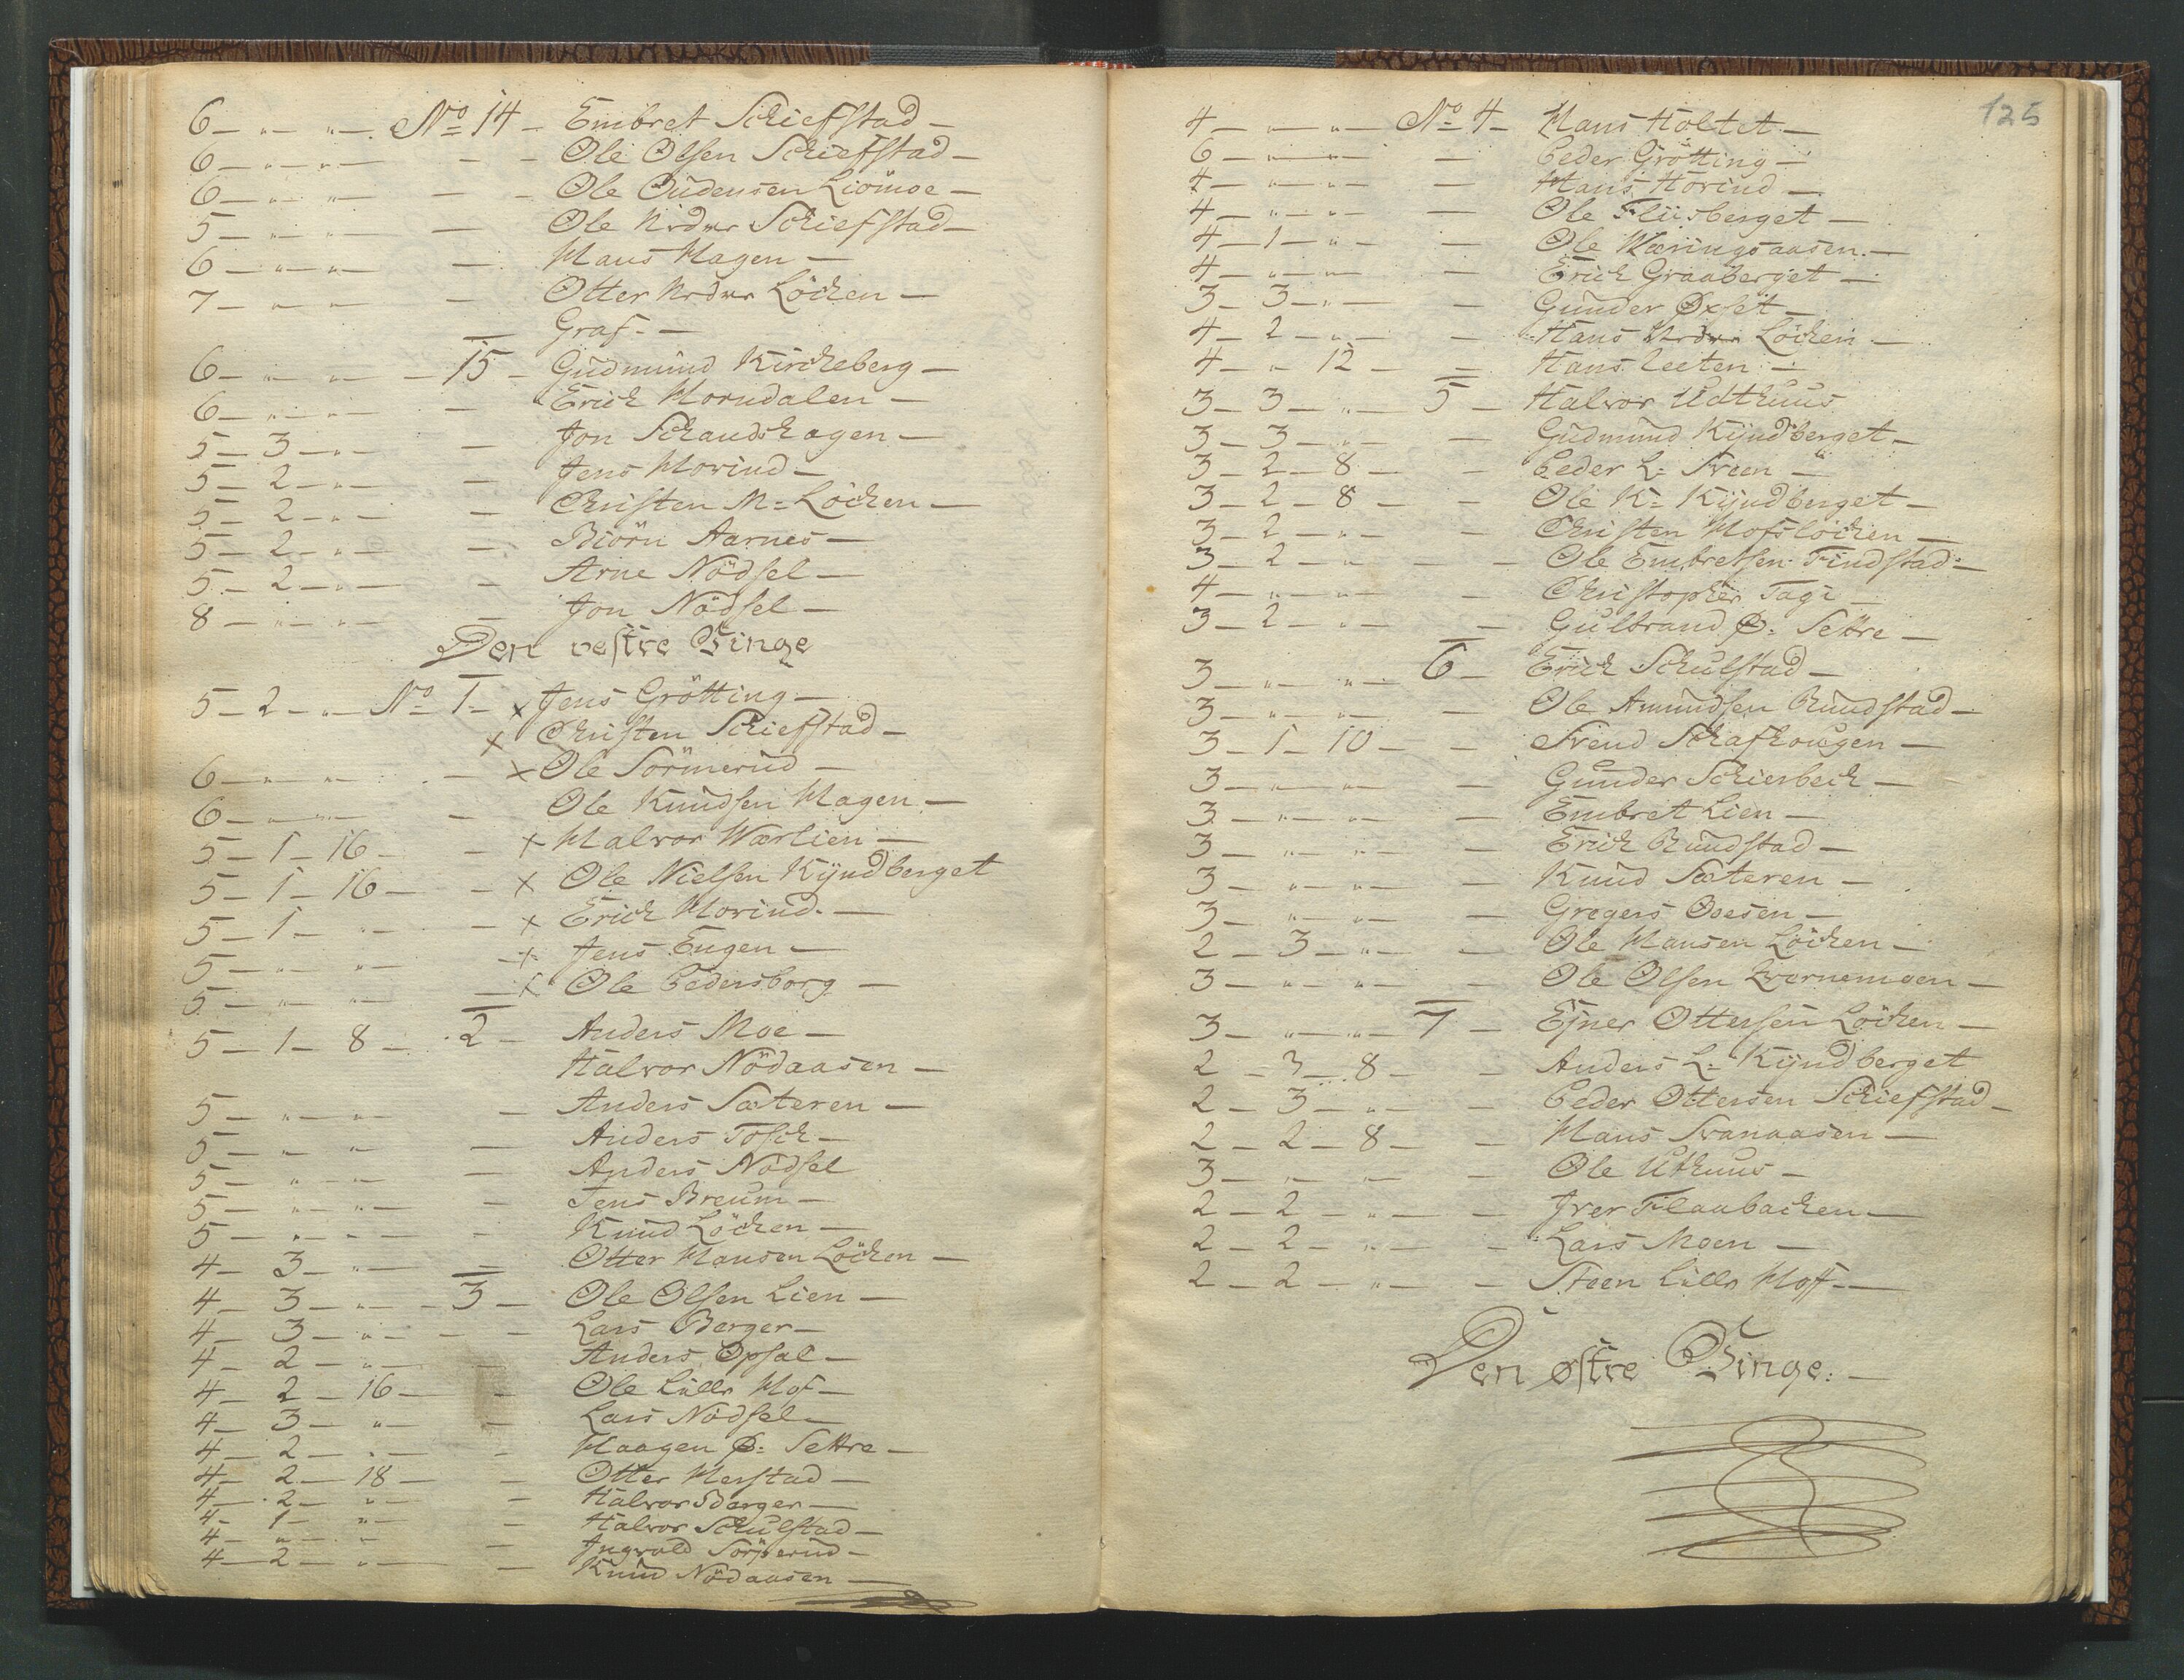 6 - " - " - No 14 - Embret Schiefstad -
6 - " - " - - - Ole Olsen Schiefstad -
6 - " - " - - - Ole Oudensen Liömoe -
5 - " - " - - Ole Schiefstad -
6 - " - " - - Hans Hagen -
7 - " - " - - Otter Löchen -
Graf. -
6 - " - " - 15 - Gudmund Kircheberg -
6 - " - " - - Erich Horndalen -
5 - 3 - " - - Jon Schandshagen -
5 - 2 - " - - Jens Horind -
5 - 2 - " - - Christen M= Löchen -
5 - 2 - " - - Biörn Aarnes -
5 - 2 - " - - Arne Nödsel -
8 - " - " - - Jon Nödsel -
Den vestre Vinge
5 - 2 - " - No 1 - x Jens Grötting -
x Christen Schiefstad -
6 - " - " - - x Ole Sörmerud -
6 - " - " - - Ole Knudsen Hagen -
5 - 1 - 16 - - x Halvor Wærlien -
5 - 1 - 16 - - x Ole Nielsen Kÿndberget
5 - 1 - " - - x Erich Horind. -
5 - " - " - - x Jens Engen -
5 - " - " - - x Ole Pedersborg -
5 - 1 - 8 - 2 - Anders Moe -
Halvor Nödaasen -
5 - " - " - - Anders Sæteren -
5 - " - " - - Anders Tosch -
5 - " - " - - Anders Nödsel
5 - " - " - - Jens Breum -
5 - " - " - - Knud Löchen -
4 - 3 - " - - Otter Hansen Löchen -
4 - 3 - " - 3 - Ole Olsen Lien -
4 - 3 - " - - - Lars Berger -
4 - 2 - " - - Anders Opsal -
4 - 2 - 16 - - Ole Lille Hof -
4 - 3 - " - - Lars Nödsel -
4 - 2 - " - - Haagen Ø: Settre -
4 - 2 - 18 - - Otter Herstad -
4 - 2 - " - - Halvor Berger -
4 - 1 - " - - Halvor Schulstad -
4 - " - " - - Ingvald Sörmerud -
4 - 2 - " - - Knud Nödaasen -
125
4 - " - " - No 4 - Hans Holtet -
6 - " - " - - Peder Grötting -
4 - " - " - - Hans Horind -
4 - " - " - - Ole Fliisberget -
4 - 1 - " - - Ole Wæringsaasen. -
4 - " - " - - Erich Graaberget -
3 - 3 - " - - Gunder Øxset -
4 - 2 - " - - Hans Löchen -
4 - " - 12 - - Hans Leeten -
3 - 3 - " - 5 - Halvor Udthuus
3 - 3 - " - - Gudmund Kÿndberget -
3 - 2 - 8 - - Peder L= Sveen -
3 - 2 - 8 - - Ole K= Kÿndberget -
3 - 2 - " - - Christen Hofslöchen -
3 - 2 - " - - - Ole Embretsen Findstad -
4 - " - " - - Christopher Tage -
3 - 2 - " - - Gulbrand Ø: Settre -
3 - " - " - 6 - Erich Schulstad -
3 - " - " - - Ole Amundsen Rundstad -
3 - 1 - 10 - - Svend Schafhougen -
3 - " - " - - Gunder Schierbech -
3 - " - " - - Embret Lien -
3 - " - " - - Erich Rundstad -
3 - " - " - - Knud Sæteren -
3 - " - " - - Gregers Oosen -
2 - 3 - " - - Ole Hansen Löchen -
3 - " - " - - Ole Olsen Kværnemoen -
3 - " - " - 7 - Ejner Ottersen Löchen -
2 - 3 - 8 - - Anders L= Kÿndberget
2 - 3 - " - - Peder Ottersen Schiefstad -
2 - 2 - 8 - - Hans Svanaasen -
3 - " - " - - Ole Uthuus -
2 - 2 - " - - Iver Flaabachen -
2 - 2 - " - - Lars Moen -
2 - 2 - " - - Steen Lille Hoff -
Den østre Vinge: -